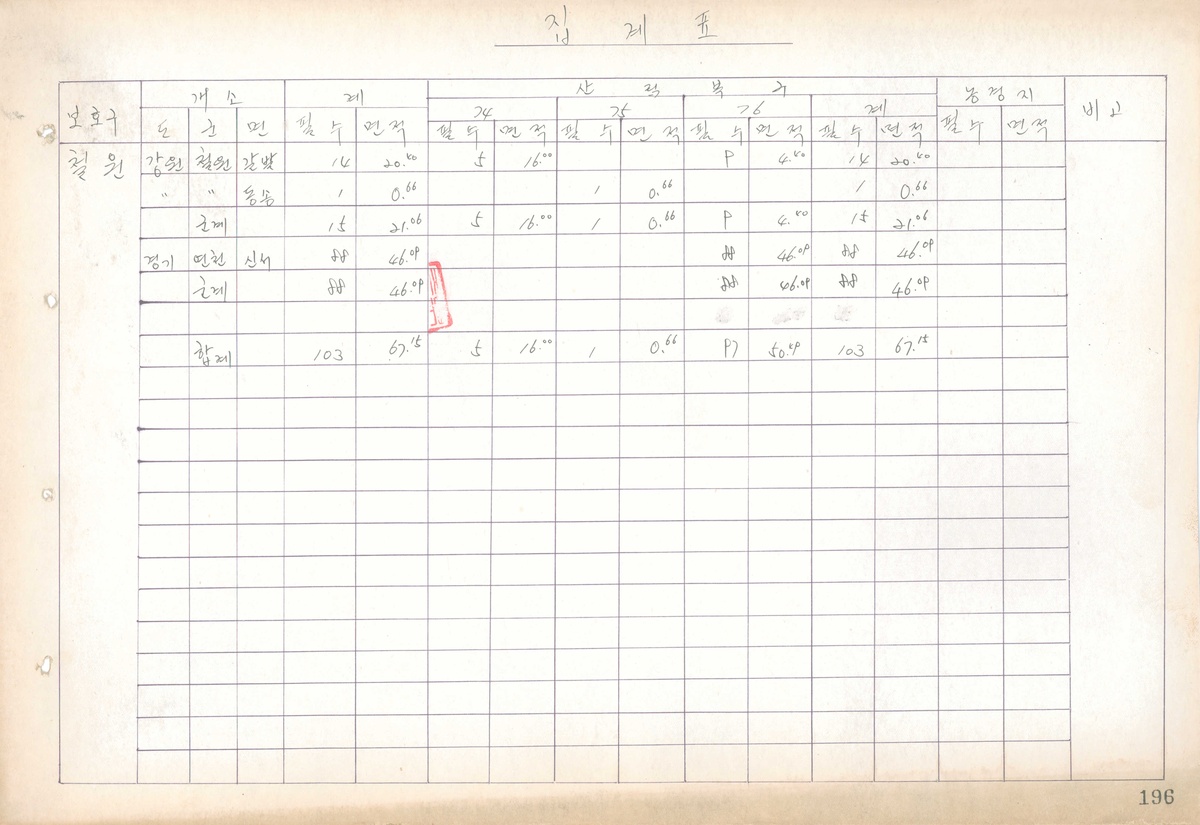 집 계 표
보호구 개소 계 산 림 복 구 농경지 비고
74 75 76 계
도 군 면 필 수 면 적 필 수 면 적 필 수 면 적 필 수 면 적 필 수 면 적 필 수 면 적
철 원 강원 철원 갈말 14 20.40 5 16.00 9 4.40 14 20.40
〃 〃 동송 1 0.66 1 0.66 1 0.66
군계 15 21.06 5 16.00 1 0.66 9 4.40 15 21.06
경기 연천 신서 88 46.09 88 46.09 88 46.09
군계 88 46.09 88 46.09 88 46.09
합계 103 67.15 5 16.00 1 0.66 97 50.49 103 67.15
196